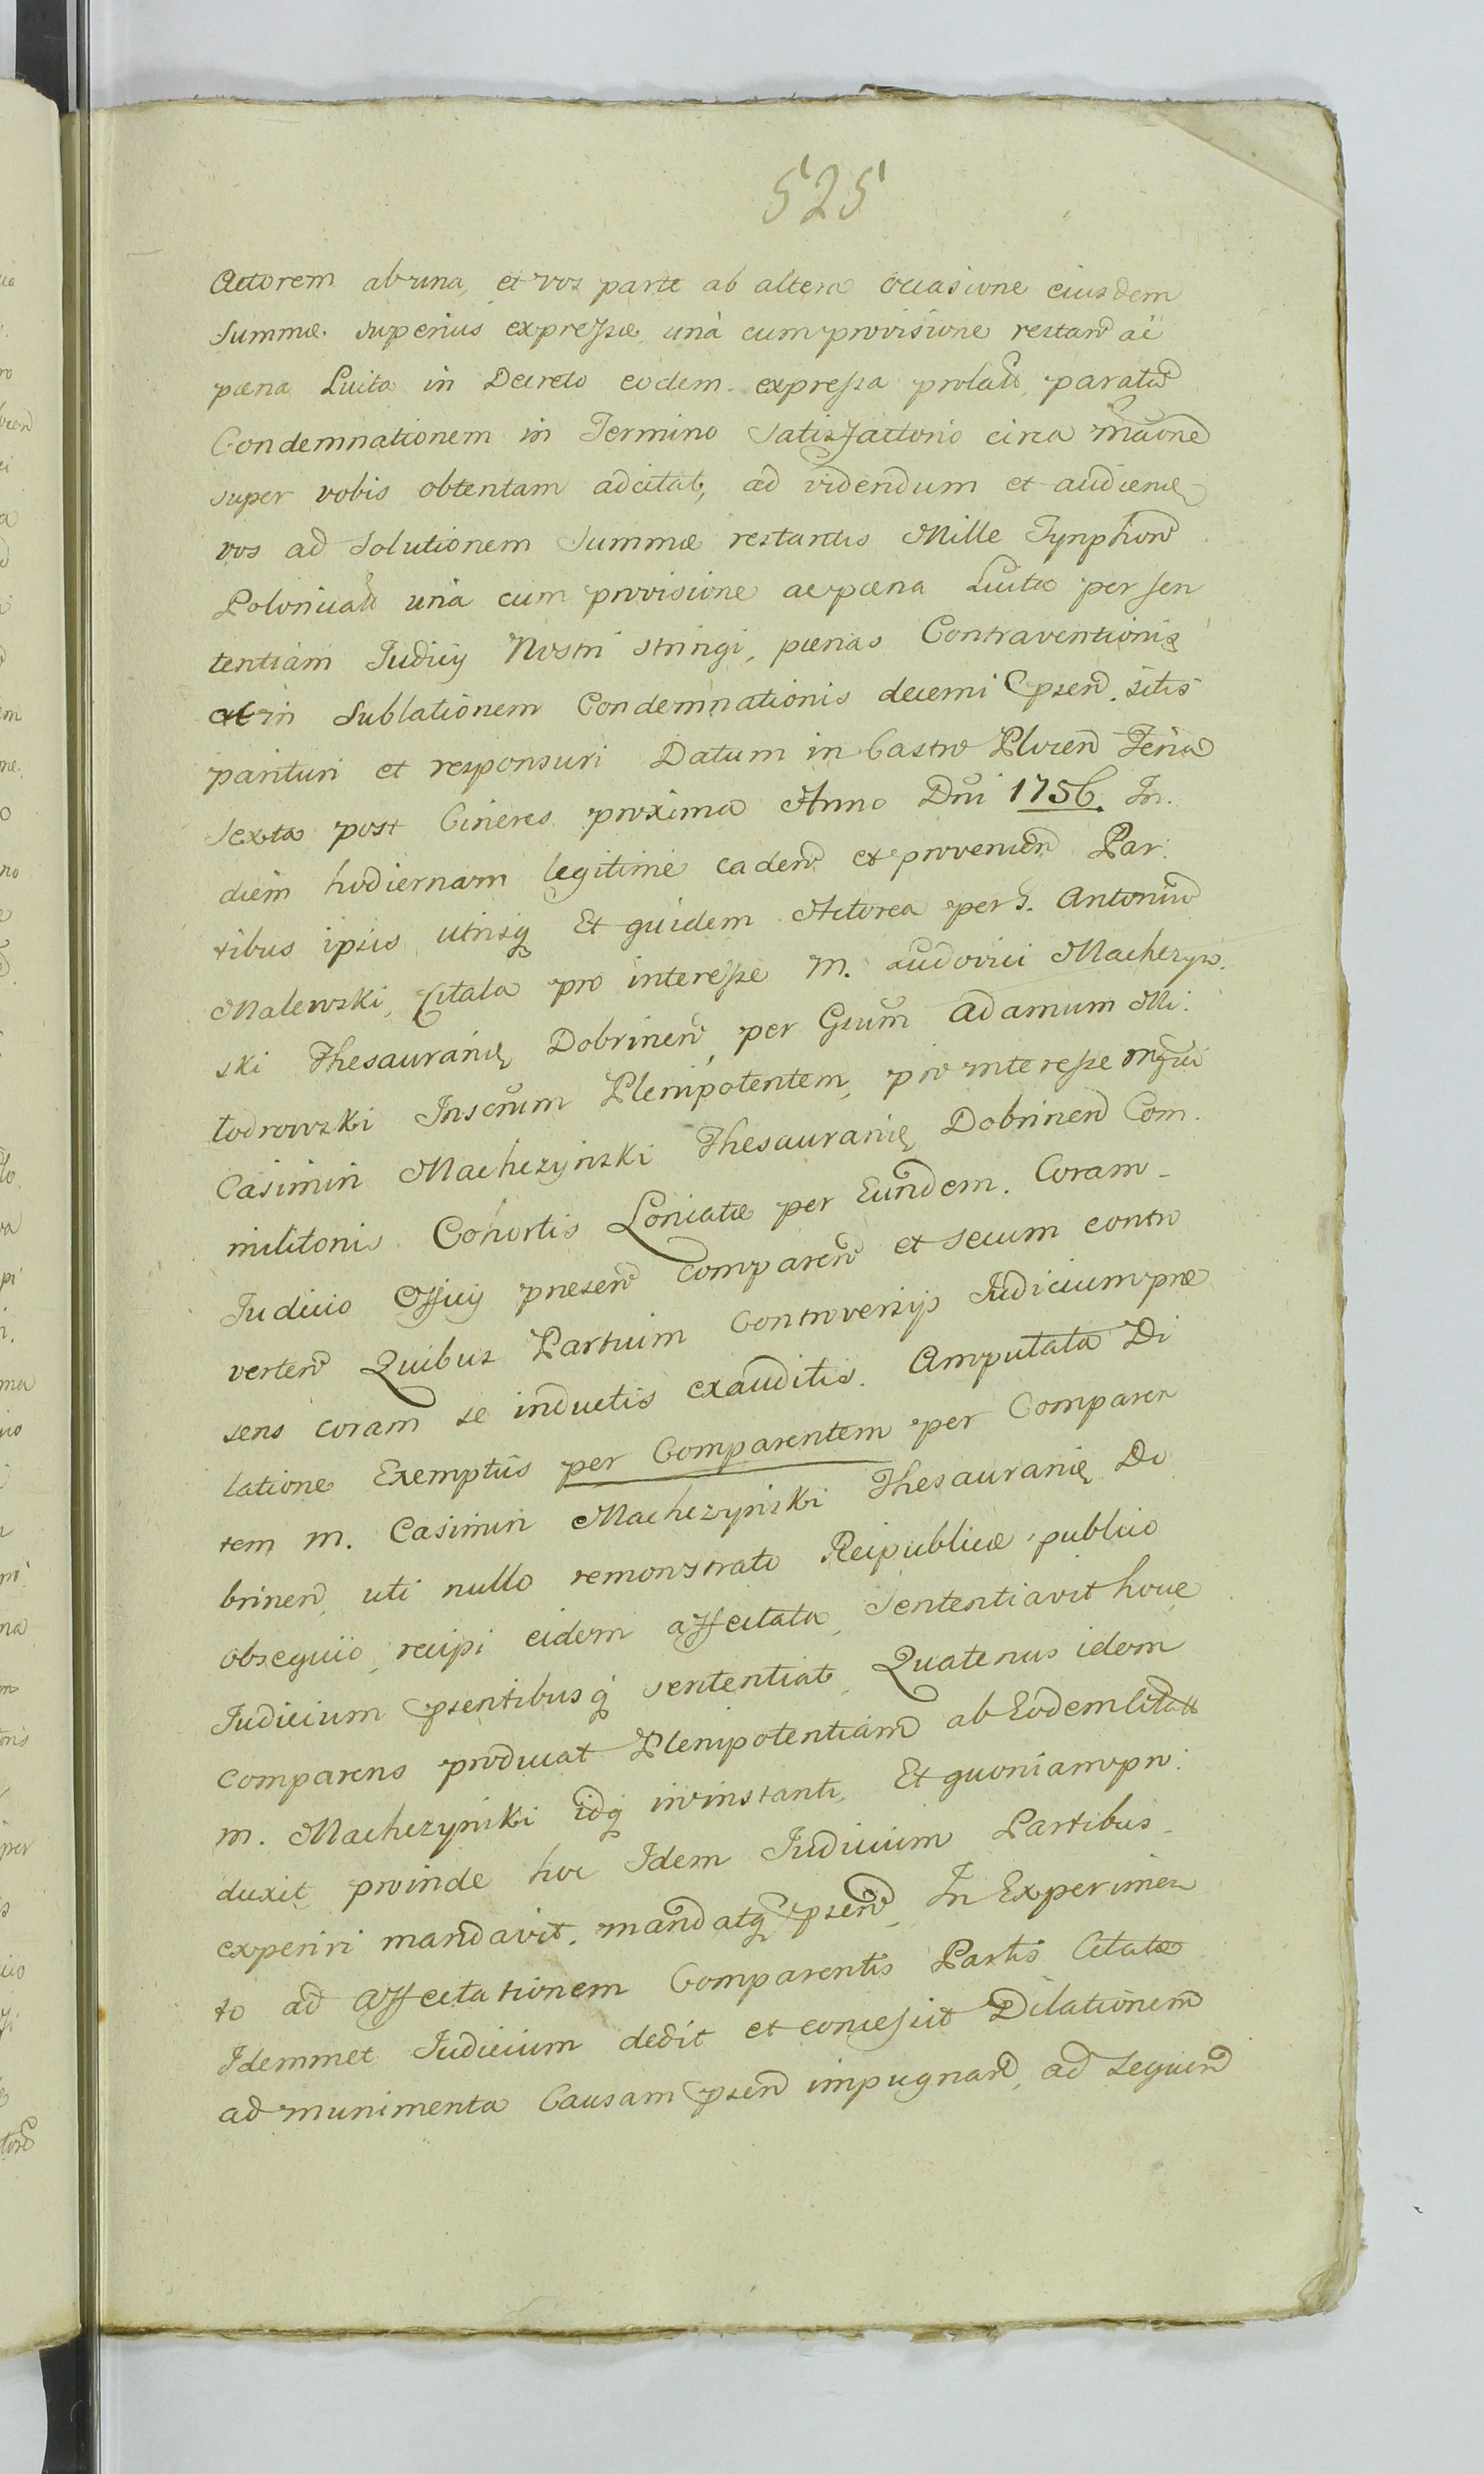 525
Actorem ab una, et vos parte ab altera occasione eiusdem
Summæ superius expressæ unà cum provisione restan ac
pæna Luita in Decreto eodem expressa prolat, paratam
Condemnationem in Termino Satisfactorio circa
super vobis obtentam adcitat, ad videndum et audiend
vos ad Solutionem Summæ restantis Mille Tynphon
Polonical unà cum provisione ac pæna Luitæ per sen
tentiam Judicij Nostri stringi, pænas Contraventionis
at in Sublationem Condemnationis decerni Præsen. sitis
parituri et responsuri Datum in Castro Plocen Feria
Sexta post Cineres proxima Anno Dni 1756. In.
diem hodiernam legitime caden et provenien Par.
tibus ipsis utrisq Et quidem Actorea per G. Antonium
Malewski, Citata pro interesse M. Ludovici Machezyn.
ski Thesauranię Dobrinen, per Gsum Adamum Mi.
todrowski Inscrum Plenipotentem, pro interesse
Casimiri Macheżyński Thesauranię Dobrinen Com.
militonis Cohortis Loricatæ per Eundem. Coram
Judicio Officij præsen comparen et secum contro
verten Quibus Partium Controversijs Judicium præ
sens coram se inductis exauditis. Amputata Di
latione Exemptûs per Comparentem per Comparen
tem M. Casimiri Macheżyński Thesauranię Do
brinen, uti nullo remonstrato Reipublicæ publico
obsequio, recipi eidem affectata, Sententiavit hocce
Judicium præsentibusq sententiat, Quatenus idem
comparens producat Plenipotentiam ab Eodem Citato
M. Macheżyński idq in instanti, Et quoniam pro.
duxit, proinde hoc Idem Judicium Partibus
experiri mandavit, mandatq præsen, In Experimen
to ad affectationem Comparentis Partis Citatæ
Idemmet Judicium dedit et concessit Dilationem
ad munimenta Causam præsen impugnan, ad sequen